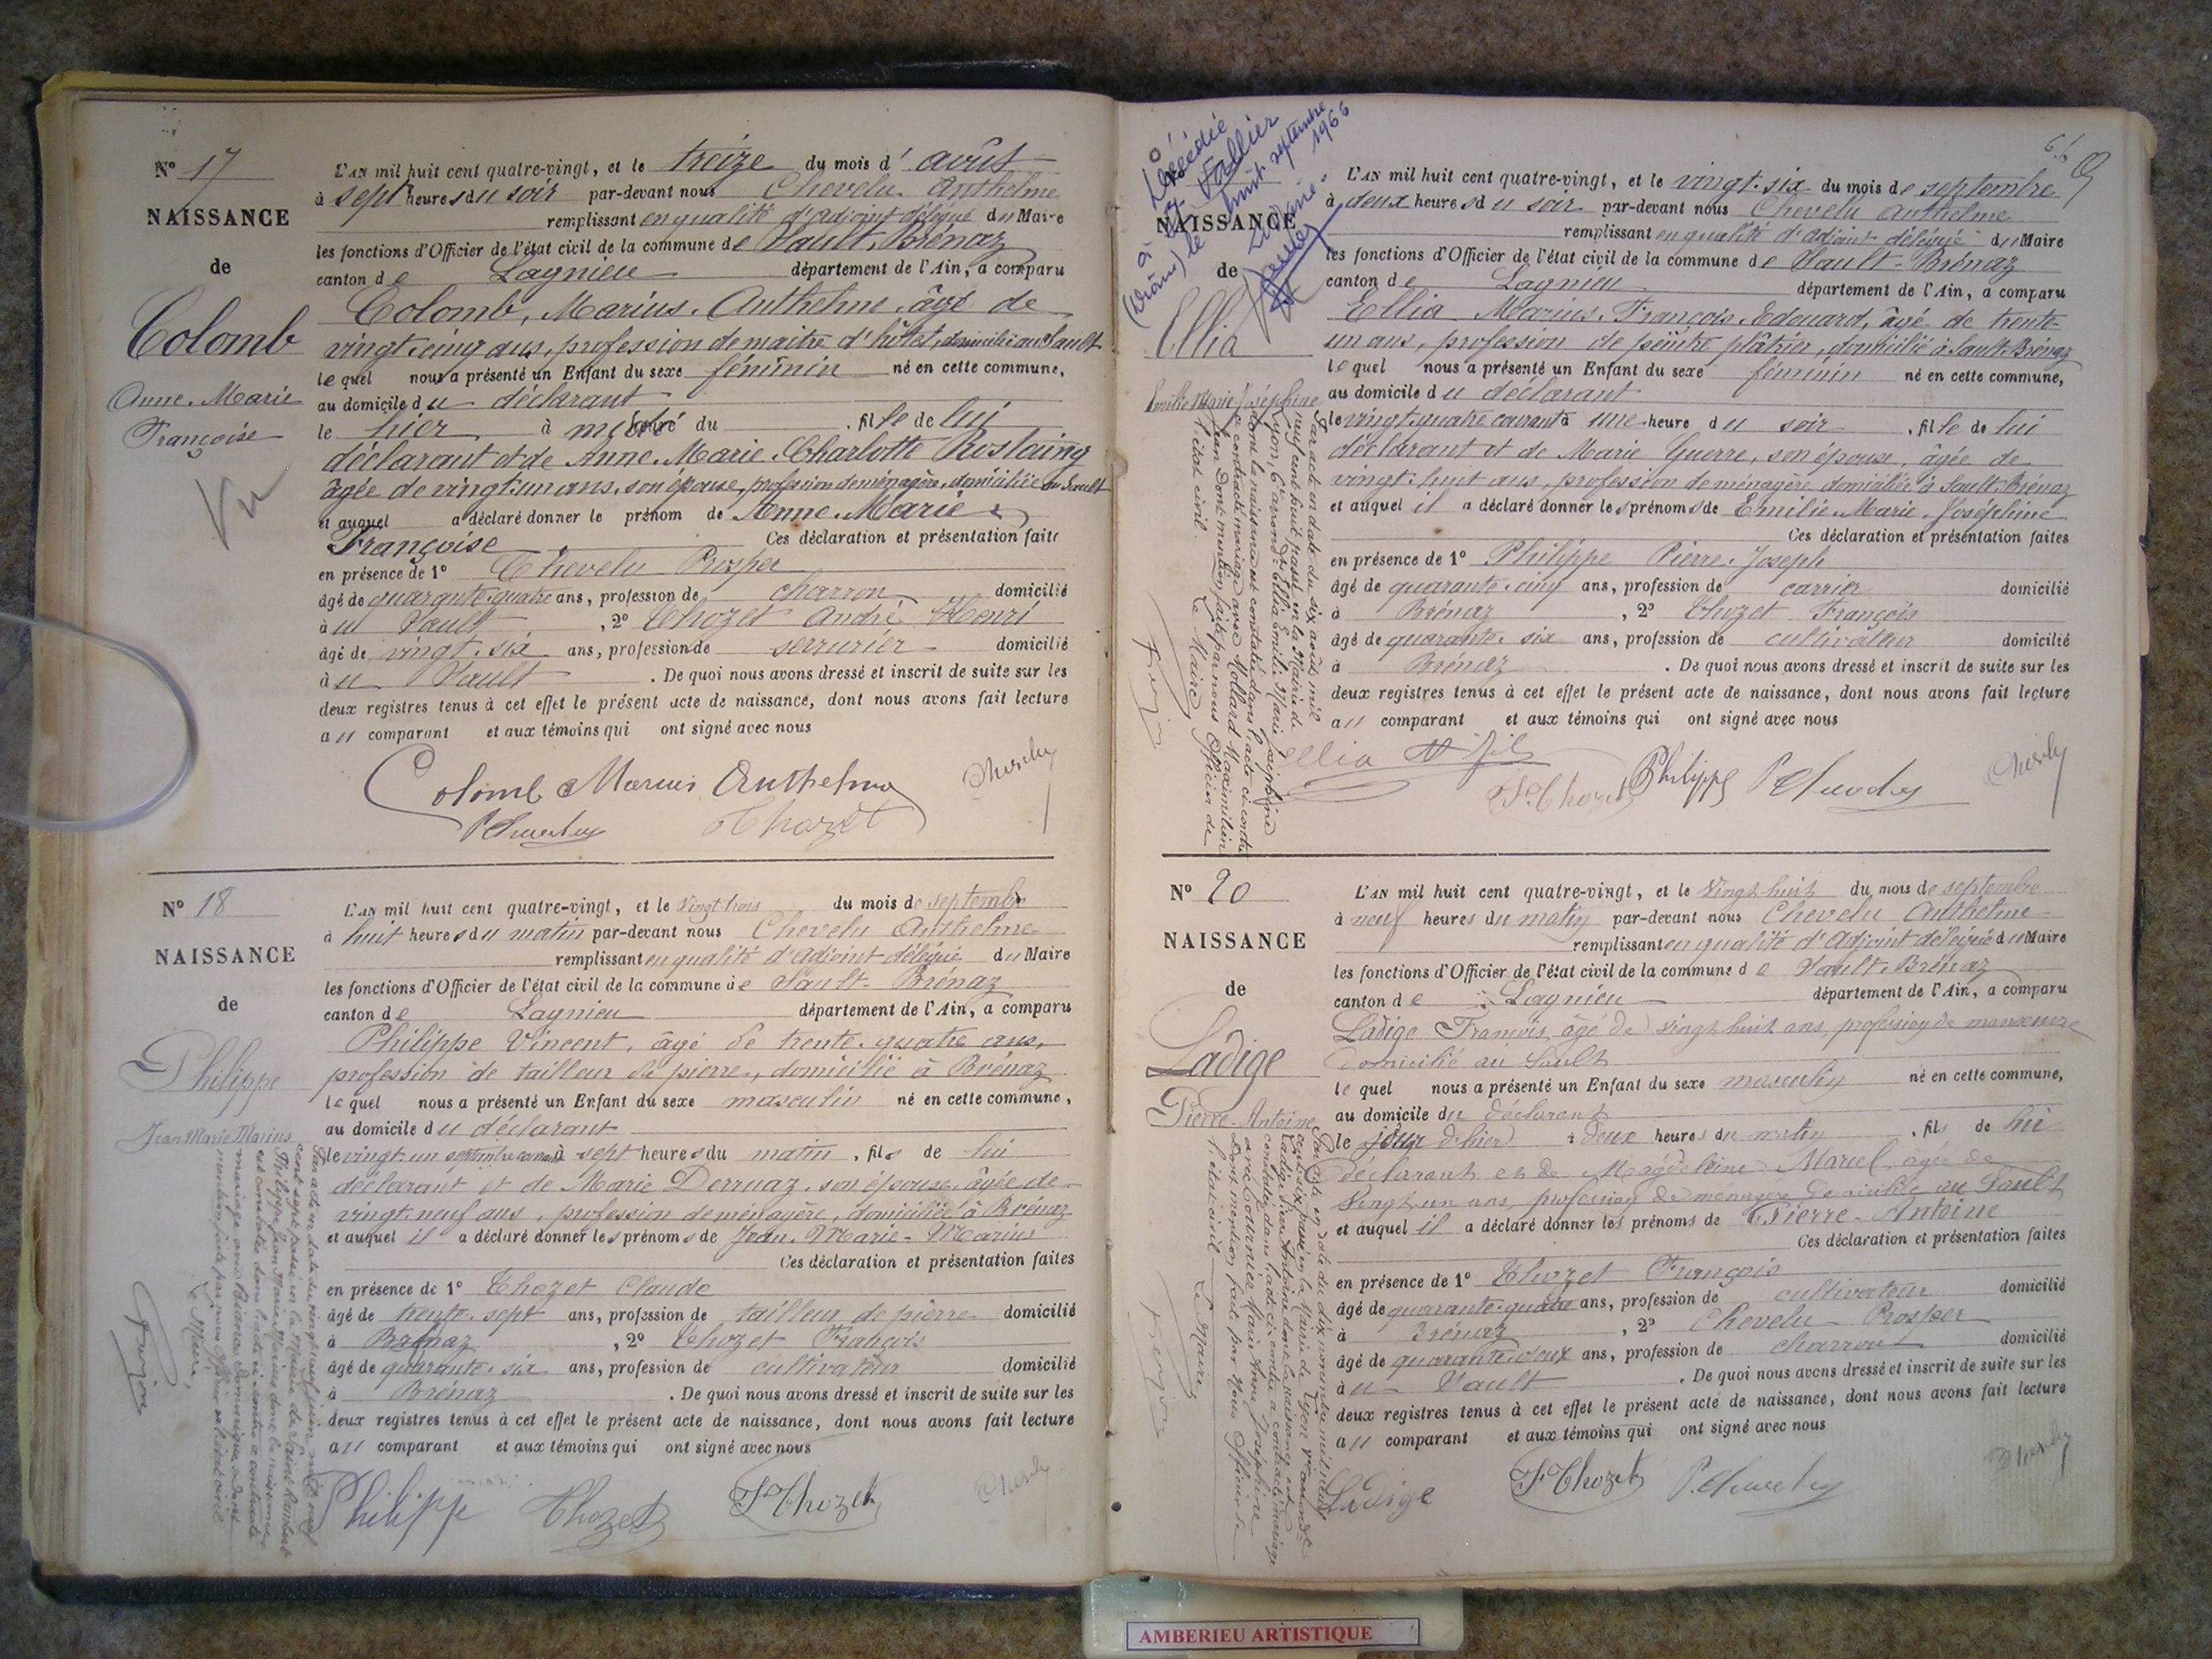 N° 17
NAISSANCE
de
Colomb
Anne-Marie
Françoise
Vu
L'AN mil huit cent quatre-vingt, et le treize du mois d'août
à sept heures du soir par-devant nous Chevelu Anthelme
remplissant en qualité d'adjoint délégué du Maire
les fonctions d'Officier de l'état civil de la commune de Sault-Brénaz
canton de Lagnieu département de l'Ain, a comparu
Colomb, Marius-Anthelme, âgé de
vingt-cinq ans, profession de maitre d'hôtel, domicilié au Sault
lequel nous a présenté un Enfant du sexe féminin né en cette commune,
au domicile du déclarant
le hier à midi du , fille de lui
déclarant et de Anne-Marie-Charlotte Rostaing
âgée de vingt-un ans, son épouse, profession de ménagère, domiciliée au Sault
et auquel a déclaré donner le prénom de Anne-Marie
Françoise Ces déclaration et présentation faites
en présence de 1° Chevelu Prosper
âgé de quarante-quatre ans, profession de charron domicilié
à u Sault , 2° Thozet André Henri
âgé de vingt-six ans, profession de serrurier domicilié
à u Sault . De quoi nous avons dressé et inscrit de suite sur les
deux registres tenus à cet effet le présent acte de naissance, dont nous avons fait lecture
au comparant et aux témoins qui ont signé avec nous
Colomb Marius Anthelme Chevelu
P Chevelu Thozet
N° 18
NAISSANCE
de
Philippe
Jean Marie Marius
L'AN mil huit cent quatre-vingt, et le vingt trois du mois de septembre
à huit heures du matin par-devant nous Chevelu Anthelme
remplissant en qualité d'adjoint délégué du Maire
les fonctions d'Officier de l'état civil de la commune de Sault-Brénaz
canton de Lagnieu département de l'Ain, a comparu
Philippe Vincent, âgé de trente-quatre ans,
profession de tailleur de pierre, domicilié à Brénaz
lequel nous a présenté un Enfant du sexe masculin né en cette commune,
au domicile du déclarant
le vingt un septembre courant à sept heures du matin, fils de lui
déclarant et de Marie Derruaz, son épouse, âgée de
vingt-neuf ans, profession de ménagère, domiciliée à Brénaz
et auquel il a déclaré donner les prénoms de Jean-Marie-Marius
Ces déclaration et présentation faites
en présence de 1° Thozet Claude
âgé de trente-sept ans, profession de tailleur de pierre domicilié
à Brénaz , 2° Thozet François
âgé de quarante-six ans, profession de cultivateur domicilié
à Brénaz . De quoi nous avons dressé et inscrit de suite sur les
deux registres tenus à cet effet le présent acte de naissance, dont nous avons fait lecture
au comparant et aux témoins qui ont signé avec nous
Philippe Thozet F Thozet Chevelu
Par acte en date du vingt neuf juin mil neuf
cent sept passé en la Mairie de Saint Rambert
Philippe Jean Marie Marius dont la naissance
est constatée dans l'acte ci-contre a contracté
mariage avec dont
mention faite par nous Officier de l'état civil
Le Maire,
Décédée
à St Vallier
(Drôme) le huit septembre
1966
NAISSANCE
de
Ellia
Emilie Marie Joséphine
L'AN mil huit cent quatre-vingt, et le vingt-six du mois de septembre
à deux heures du soir par-devant nous Chevelu Anthelme
remplissant en qualité d'adjoint délégué du Maire
les fonctions d'Officier de l'état civil de la commune de Sault-Brénaz
canton de Lagnieu département de l'Ain, a comparu
Ellia Marius-François-Edouard, âgé de trente-
un ans, profession de peintre plâtrier, domicilié à Sault-Brénaz
lequel nous a présenté un Enfant du sexe féminin né en cette commune,
au domicile du déclarant
le vingt-quatre courant à une heure du soir , fille de lui
déclarant et de Marie Guerre, son épouse, âgée de
vingt-huit ans, profession de ménagère domiciliée à Sault-Brénaz
et auquel il a déclaré donner les prénoms de Emilie-Marie-Joséphine
Ces déclaration et présentation faites
en présence de 1° Philippe Pierre-Joseph
âgé de quarante-cinq ans, profession de carrier domicilié
à Brénaz , 2° Thozet François
âgé de quarante-six ans, profession de cultivateur domicilié
à Brénaz . De quoi nous avons dressé et inscrit de suite sur les
deux registres tenus à cet effet le présent acte de naissance, dont nous avons fait lecture
au comparant et aux témoins qui ont signé avec nous
Ellia fils F Thozet Philippe P Chevelu Chevelu
Par acte en date du dix août mil
neuf cent huit passé en la Mairie de
Lyon, 6e arrondt Ellia Emilie Marie Joséphine
dont la naissance est constatée dans l'acte ci-contre
a contracté mariage avec Mollard Maximilien
dont mention faite par nous Officier de
l'état civil. Le Maire
N° 20
NAISSANCE
de
Ladige
Pierre-Antoine
L'AN mil huit cent quatre-vingt, et le vingt huit du mois de septembre
à neuf heures du matin par-devant nous Chevelu Anthelme
remplissant en qualité d'Adjoint délégué du Maire
les fonctions d'Officier de l'état civil de la commune de Sault-Brénaz
canton de Lagnieu département de l'Ain, a comparu
Ladige François, âgé de vingt huit ans, profession de manœuvre
domicilié au Sault
lequel nous a présenté un Enfant du sexe masculin né en cette commune,
au domicile du déclarant
le jour d'hier à deux heures du matin , fils de lui
déclarant et de Magdeleine Marcel, âgée de
vingt un ans, profession de ménagère domiciliée au Sault
et auquel il a déclaré donner les prénoms de Pierre-Antoine
Ces déclaration et présentation faites
en présence de 1° Thozet François
âgé de quarante-quatre ans, profession de cultivateur domicilié
à Brénaz , 2° Chevelu Prosper
âgé de quarante-deux ans, profession de charron domicilié
à u Sault . De quoi nous avons dressé et inscrit de suite sur les
deux registres tenus à cet effet le présent acte de naissance, dont nous avons fait lecture
au comparant et aux témoins qui ont signé avec nous
Ladige F Thozet P. Chevelu Chevelu
Par acte en date du dix novembre mil neuf
cent six passé en la Mairie de Lyon arrondt
Ladige Pierre Antoine dont la naissance est
constatée dans l'acte ci-contre a contracté mariage
avec Marie Anne Joséphine
dont mention faite par nous Officier de
l'état civil Le Maire
AMBERIEU ARTISTIQUE